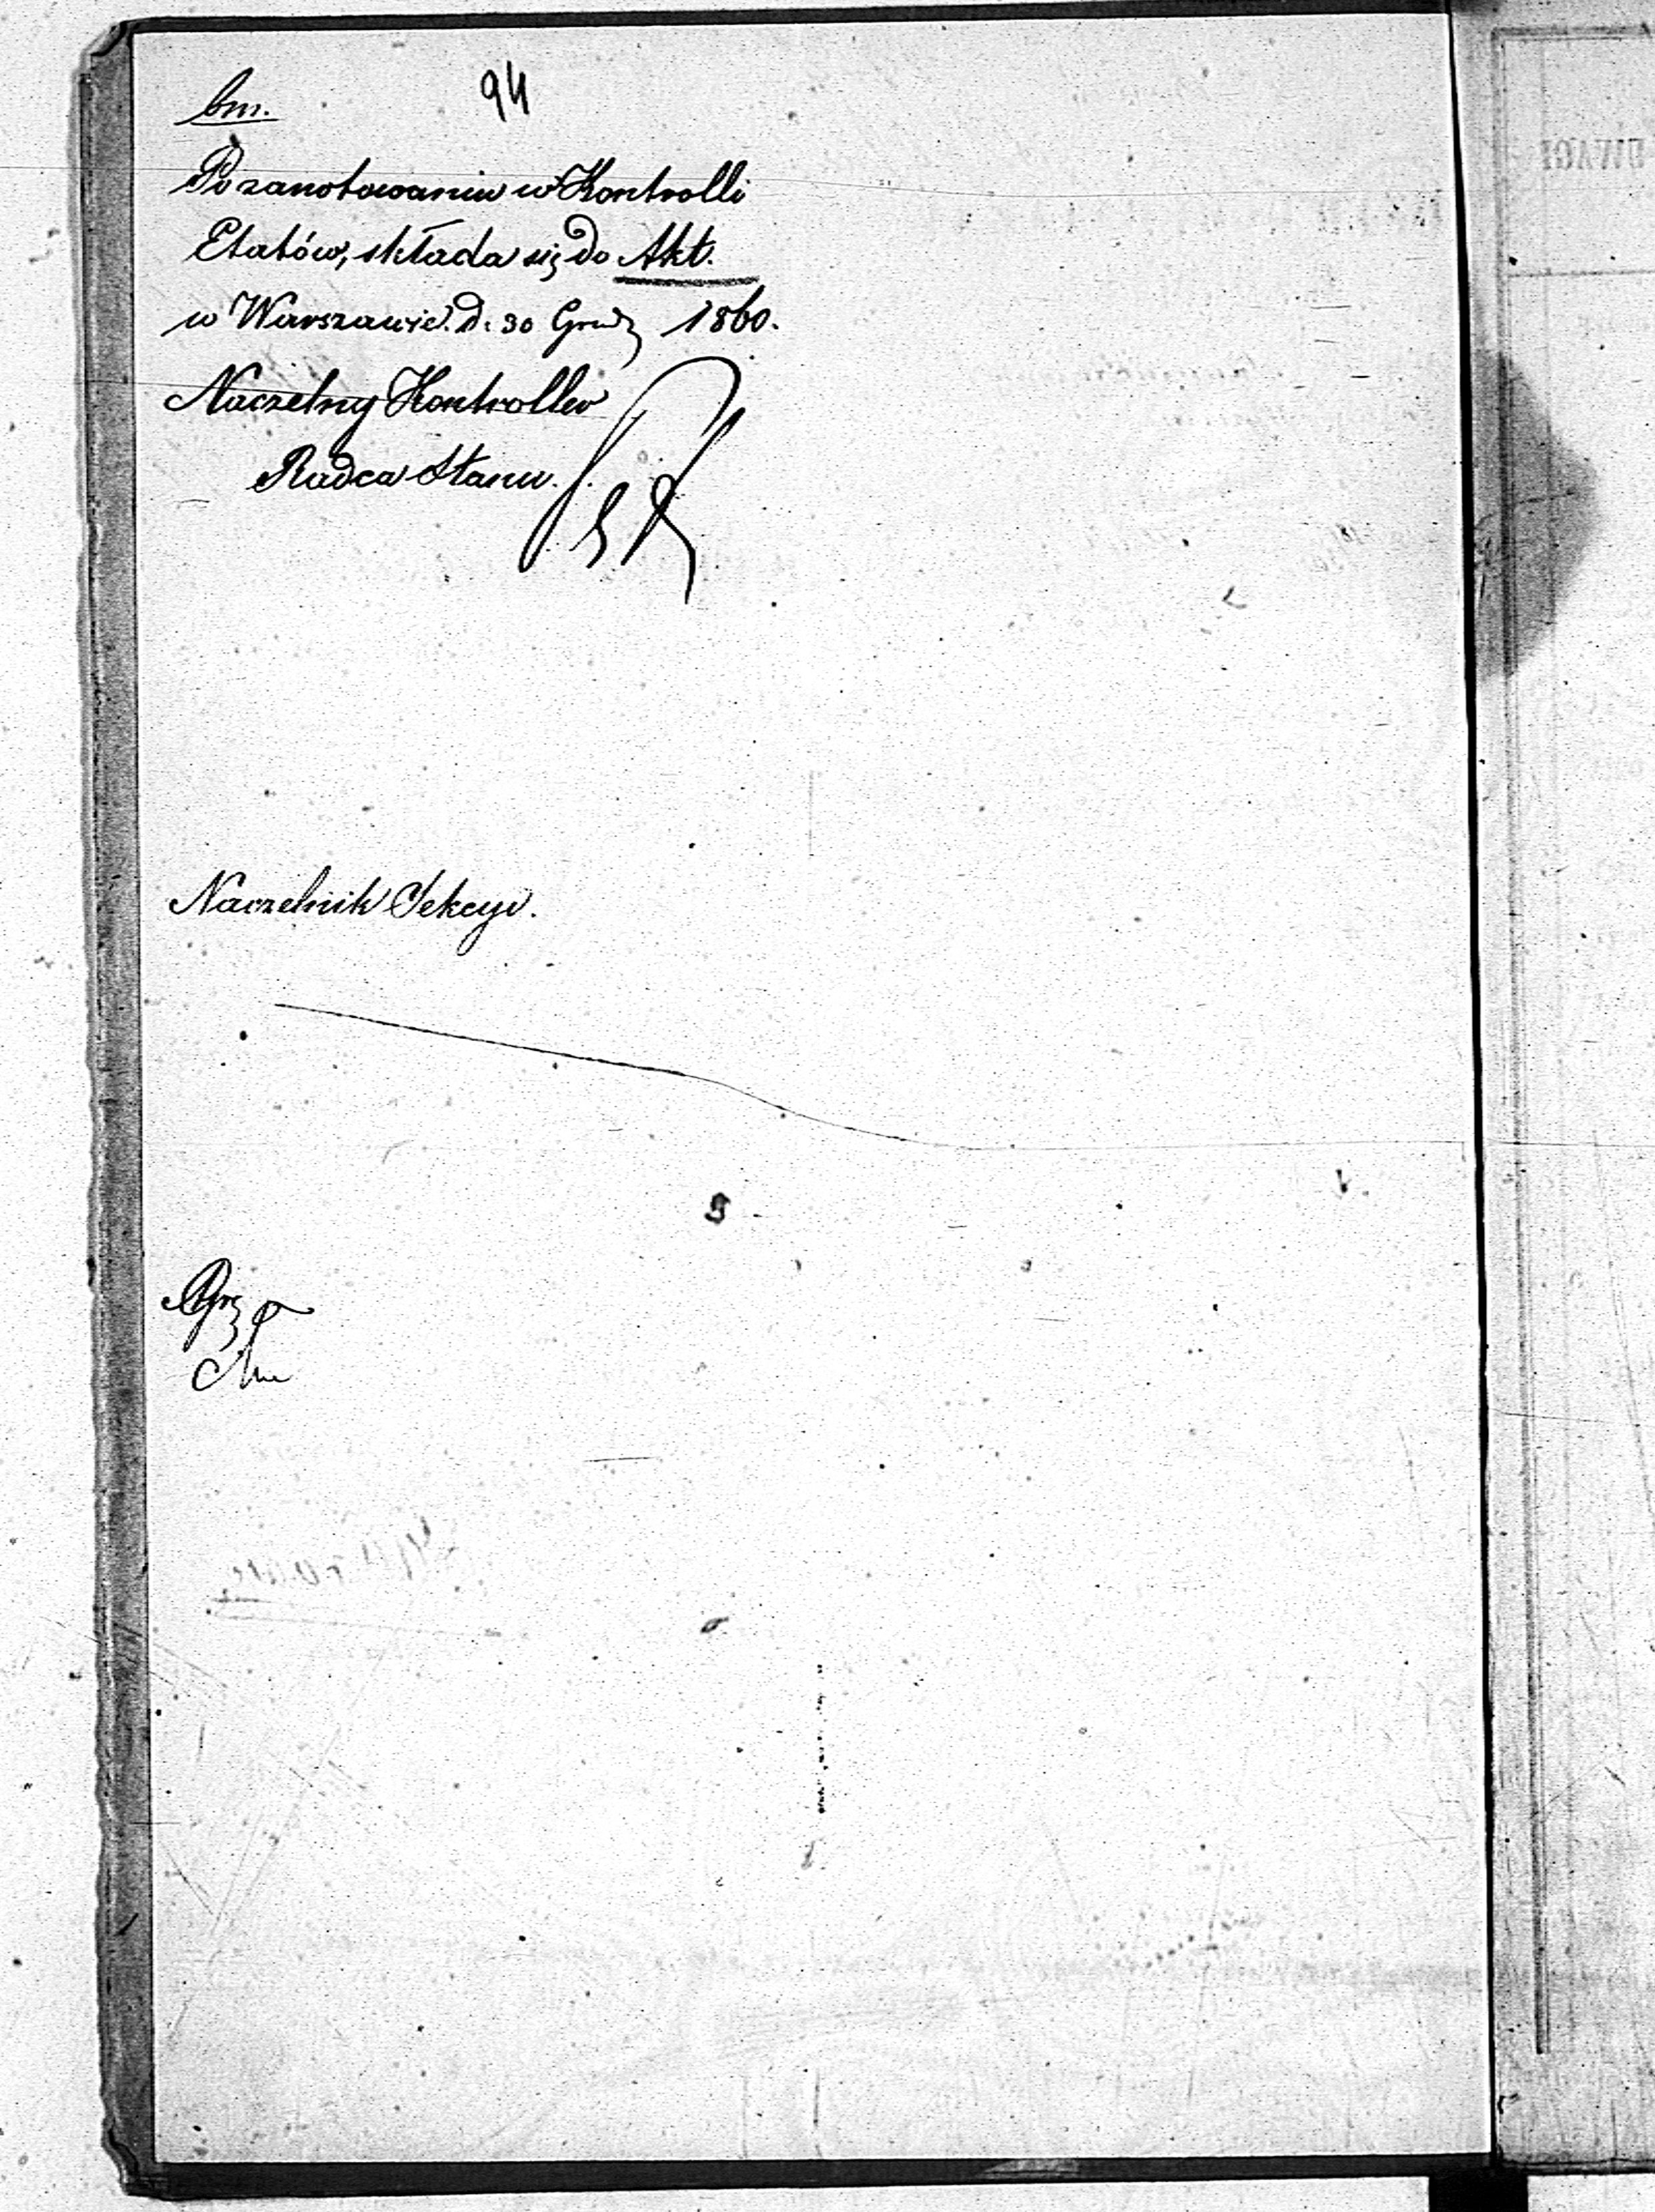 bm.
94
Po zanotowaniu w Kontrolli
Etatów, składa się do Akt.
w Warszawie d: 30 Grud 1860.
Naczelny Kontroller
Radca Stanu.
Naczelnik Sekcyi.